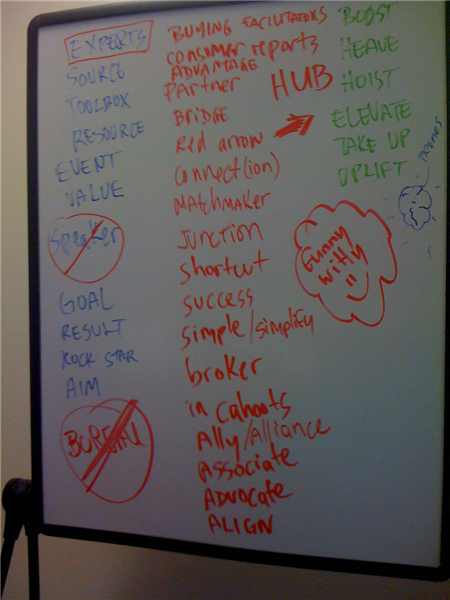 EXPERTS
SOURCE
TOOLBOX
RESOURCE
EVENT
VALUE
Speaker
GOAL
RESULT
ROCK STAR
AIM
BUREAU
BUYING FACILITATORS
consumer reports
ADVANTAGE
Partner
BRIDGE
Red arrow
connect(ion)
MATCHMAKER
JUNCTION
shortcut
success
simple/simplify
broker
in cahoots
Ally/Alliance
Associate
ADVOCATE
ALIGN
HUB
BOOST
HEAVE
HOIST
ELEVATE
TAKE UP
UPLIFT
Funny
witty